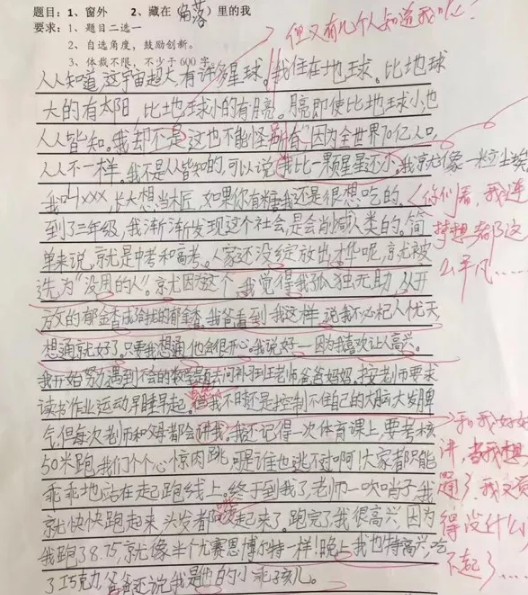 题目：1、窗外  2、藏在（角落）里的我
要求：1、题目二选一
2、自选角度，鼓励创新。
3、体裁不限，不少于600字
但又有几个人知道我呢？
人人知道，这宇宙超大，有许多星球。我住在地球。比地球
大的有太阳，比地球小的有月亮。月亮即使比地球小，也
人人皆知。我却不是，这也不能怪别人，因为全世界70亿人口，
人人不一样。我不是人皆知的，可以说我比一颗星星还小，我就像一粒尘埃
我叫xxx，长大想当木匠，如果你有糖，我还是很想吃的。
（你们看，我连
梦想都这
么平凡……
到了三年级，我渐渐发现这个社会，是会消灭人类的。简
单来说，就是中考和高考。人家还没绽放出才华呢，就被
选为“没用的人”。就因为这个，我觉得我孤独无助，从开
放的郁金香成的郁金香。我爸看到我这样，说我不必杞人忧天，
想通就好了，只要我想通，他会很开心。我说好——因为我喜欢让人高兴。
我开始努力，遇到不会的数学题去问补习班老师、爸爸妈妈，按老师要求
读书作业运动早睡早起。但我不时还是控制不住自己的大脑大发脾
气，但每次老师和父母都会讲我。我还记得一次体育课上，要考核
和我好好
讲，当我想
通了，我又觉
得没什么
不起了……
50米跑，我们个个心惊肉跳，可是谁也逃不过啊！大家都只能
乖乖地站在起跑线上。终于到我了，老师一吹哨子，我
就快快跑起来，头发都起来了。跑完了，我很高兴，因为
我跑了8.75，就像半个尤赛恩博尔特一样！晚上我也特高兴，吃
了巧克力，爸爸还说我是他的小乖孩儿。